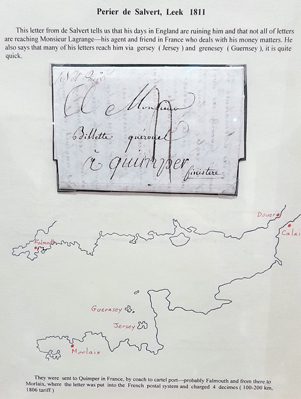 Perier de Salvert, Leek 1811
This letter from de Salvert tells us that his days in England are ruining him and that not all of letters
are reaching Monsieur Lagrange—his agent and friend in France who deals with his money matters. He
also says that many of his letters reach him via gersey ( Jersey ) and grenesey ( Guernsey ), it is quite
quick.
A Monsieur
Billette
à quimper
finistere
Dover
Calai
Falmouth
Guernsey
Jersey
Morlaix
They were sent to Quimper in France, by coach to cartel port—probably Falmouth and from there to
Morlaix, where the letter was put into the French postal system and charged 4 decimes ( 100-200 km,
1806 tariff )